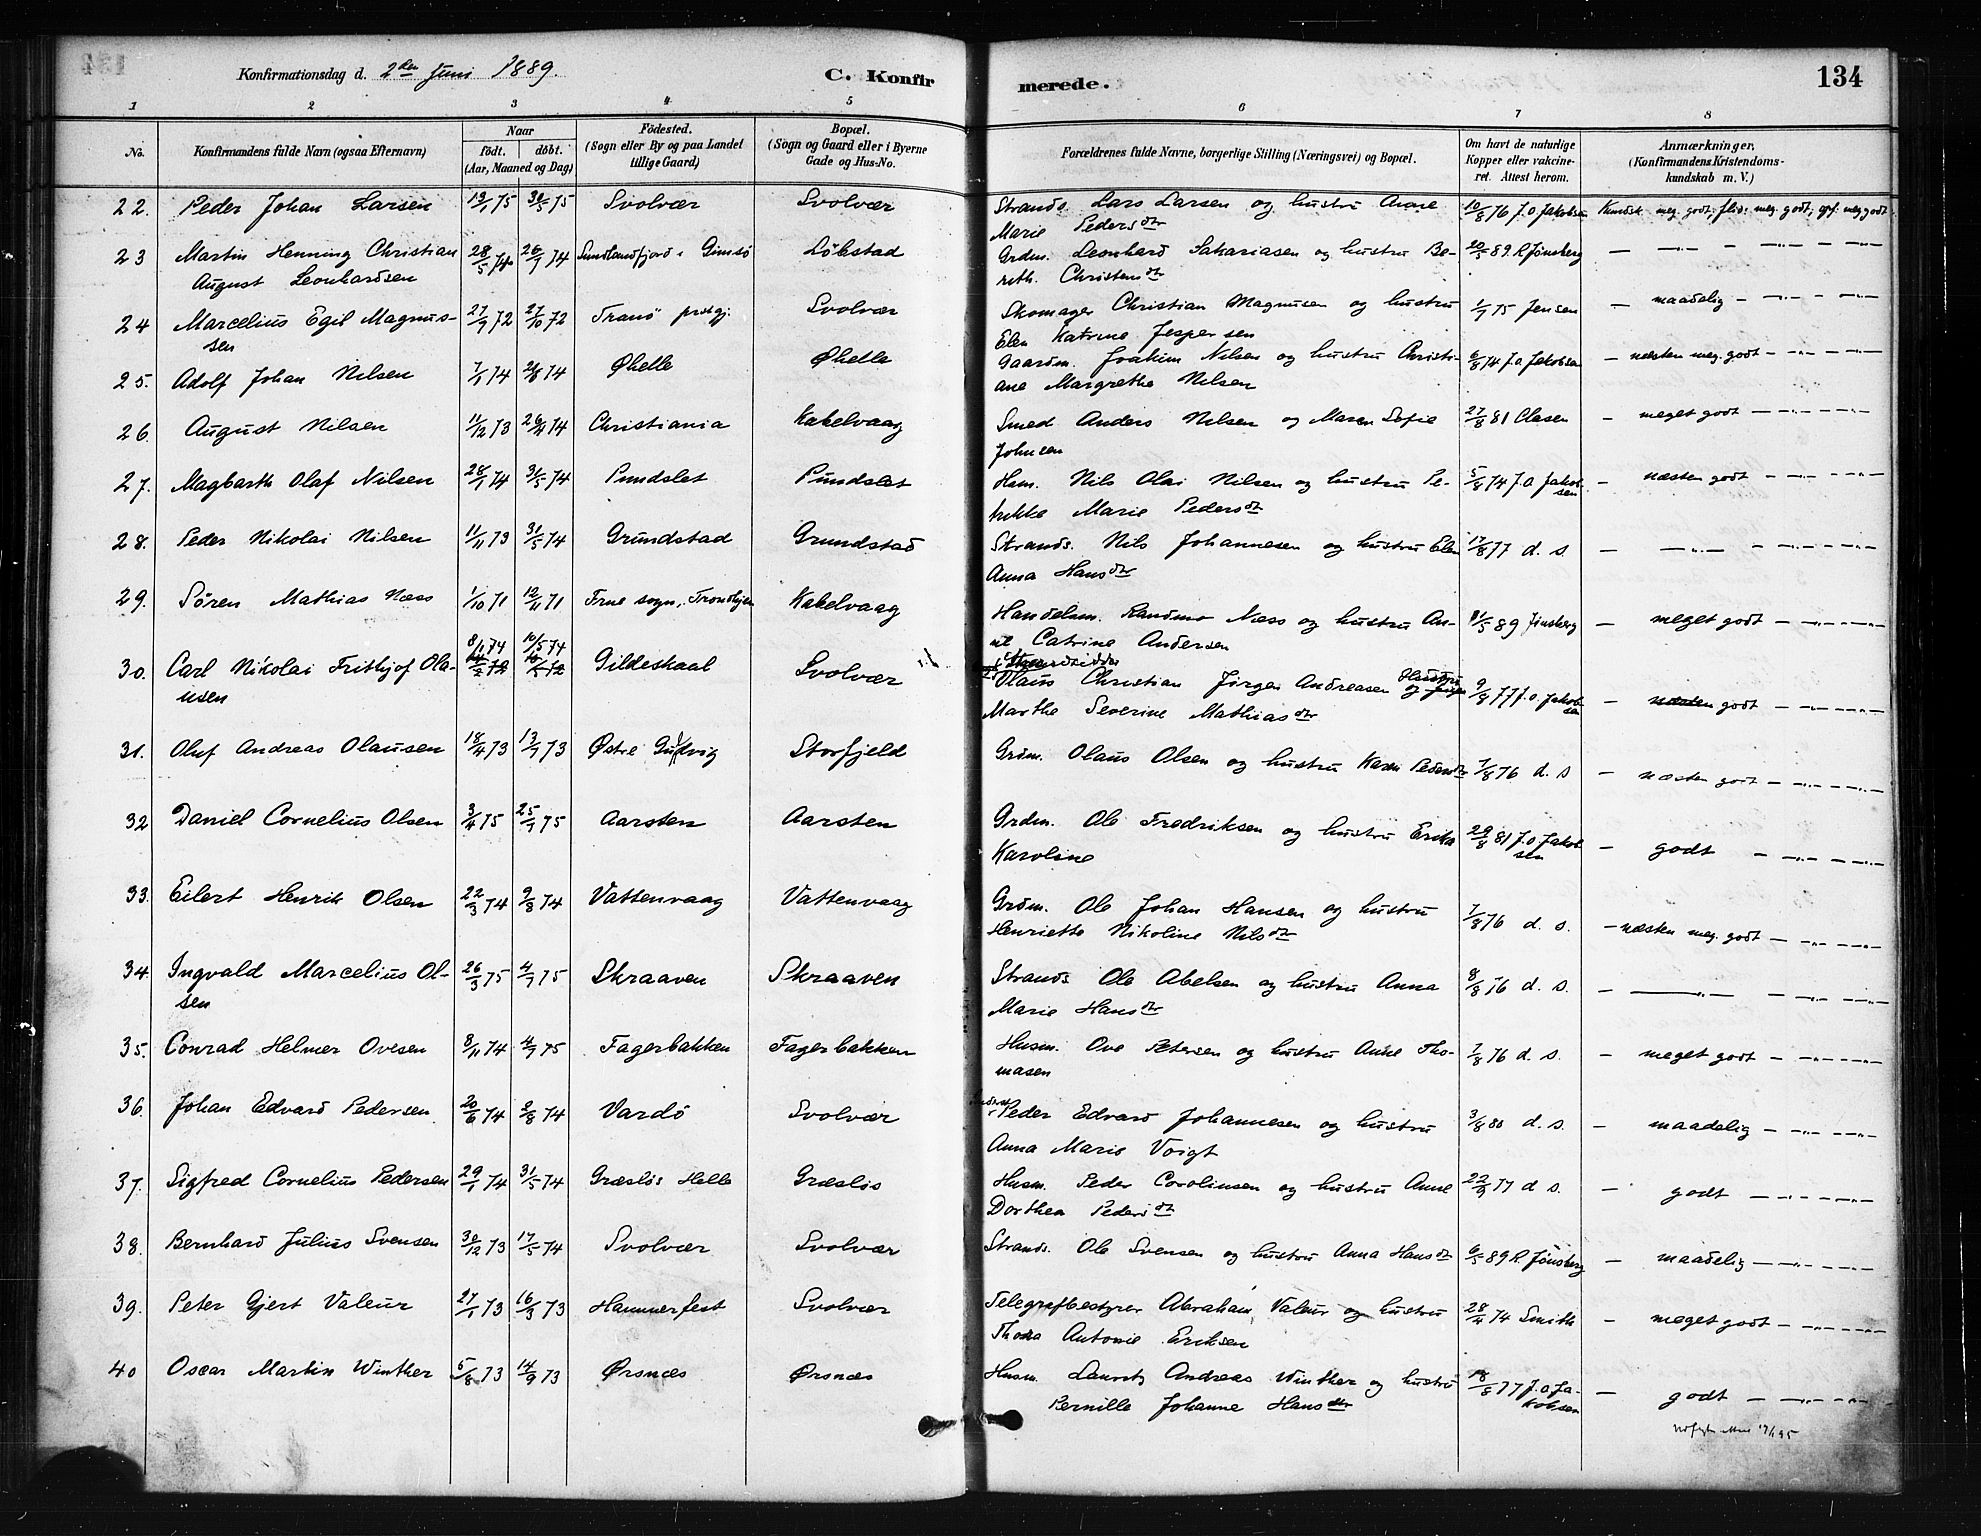 Konfirmationsdag d. 2den Juni 1889.
C. Konfir
merede.
134
1 2 3 4 5 6 7 8
No.
Konfirmandens fulde Navn (ogsaa Efternavn)
Naar
født. døbt.
(Aar, Maaned og Dag)
Fødested.
(Sogn eller By og paa Landet
tillige Gaard)
Bopæl.
(Sogn og Gaard eller i Byerne
Gade og Hus-No.
Forældrenes fulde Navne, borgerlige Stilling (Næringsvei) og Bopæl.
Om havt de naturlige
Kopper eller vakcine-
ret. Attest herom.
Anmærkninger,
(Konfirmandens Kristendoms-
kundskab m. V.)
22. Peder Johan Larsen 13/1 75 30/5 75 Svolvær Svolvær Strands. Lars Larsen og hustru Anne 10/8 76 J. O. Jakobsen Kundsk. meg. godt; flid: meg. godt, opf. meg godt
Marie Pedersdtr
23 Martin Henning Christian 28/5 74 26/7 74 Sundlandsfjord i Gimsø Løkstad Grdm. Leonhard Sakariasen og hustru Be- 20/5 89. R. Jønsberg — —„— — —„— — —„—
August Leonhardsen reth. Christensdtr
24 Marcelius Egil Magnus- 27/9 72 27/10 72 Tranø prstgj. Svolvær Skomager Christian Magnusen og hustru 1/7 75 Jensen — maadelig — —„— — —„—
sen Elen Katrine Jespersen
25. Adolf Johan Nilsen 7/1 74 74 Øhelle Øhelle Gaardm. Joakim Nilsen og hustru Christi- 6/8 74 J. O. Jakobsen — næsten meg. godt — —„— — —„—
ane Margrethe Nilsen
26. August Nilsen 11/12 73 26/4 74 Christiania Kabelvaag Smed Anders Nilsen og Maren Sofie 27/8 81 Clasen — meget godt — —„— — —„—
Johnsen
27. Magbarth Olaf Nilsen 28/1 74 31/5 74 Pundslet Pundslet Husm. Nils Olai Nilsen og hustru Pe- 5/8 74 J. O. Jakob- — næsten godt — —„— — —„—
sen
trikke Marie Pedersdtr
28. Peder Nikolai Nilsen 11/11 73 31/5 74 Grundstad Grundstad Strands. Nils Johannesen og hustru Elen 17/8 77 d. s. — —„— — —„— — —„—
Anna Hansdtr
29. Søren Mathias Næss 1/10 71 12/11 71 Frue sogn, Trondhjem Kabelvaag Handelsm. Randmo Næss og hustru An- 11/5 89 Jønsberg — meget godt — —„— — —„—
ne Catrine Andersen
8/1 74 10/5 74
30. Carl Nikolai Frithjof Ola- Gildeskaal Svolvær Olaus Christian Jørgen Andreasen og Hustru 9/8 77 J. O. Jakob- — næsten godt — —„— — —„—
usen Marthe Severine Mathiasdtr sen
31. Oluf Andreas Olausen 18/4 73 13/7 73 Østre Gudvig Storfjeld Grdm. Olaus Olsen og hustru Karen Pedersdtr 7/8 76 d. s — næsten godt — —„— — —„—
32 Daniel Cornelius Olsen 3/4 75 25/7 75 Aarsten Aarsten Grdm. Ole Fredriksen og hustru Erika 29/8 81 J. O. Jakob- — godt — —„— — —„—
sen
Karoline
33. Eilert Henrik Olsen 22/3 74 9/8 74 Vattenvaag Vattenvaag Grdm. Ole Johan Hansen og hustru 7/8 76 d. s. — næsten meg. godt — —„— — —„—
Henriette Nikoline Nilsdtr
34. Ingvald Marcelius Ol- 26/3 75 4/7 75 Skraaven Skraaven Strands Ole Abelsen og hustru Anna 8/8 76 d. s. — —„— — —„— — —„—
sen Marie Hansdtr
35. Conrad Helmer Ovesen 8/11 74 4/7 75 Fagerbakken Fagerbakken Husm. Ove Petersen og hustru Anne Tho- 7/8 76 d. s. — meget godt — —„— — —„—
masen
36. Johan Edvard Pedersen 20/6 74 9/8 74 Vardø Svolvær Peder Edvard Johannesen og hustru 3/8 80 d. s. — maadelig — —„— — —„—
Anna Marie Voigt
37. Sigfred Cornelius Pedersen 29/1 74 31/5 74 Græsløs Helle Græsløs Husm. Peder Carolinsen og hustru Anne 22/9 77 d s. — godt — —„— — —„—
Dorthea Pedersdtr
38. Bernhard Julius Svensen 30/12 73 17/5 74 Svolvær Svolvær Strands. Ole Svensen og hustru Anna Hansdtr 6/5 89 R. Jønsberg — maadelig — —„— — —„—
39. Peter Gjert Valeur 27/1 73 16/3 73 Hammerfest Svolvær Telegrafbestyrer Abraham Valeur og hustru 28/4 74 Smith — meget godt — —„— — —„—
Thora Antonie Eriksen
40 Oscar Martin Winther 5/8 73 14/9 73 Ørsnæs Ørsnæs Husm. Laurits Andreas Winther og hustru 18/8 77 J. O. Ja- — godt — —„— — —„—
Pernille Johanne Hansdtr kobsen